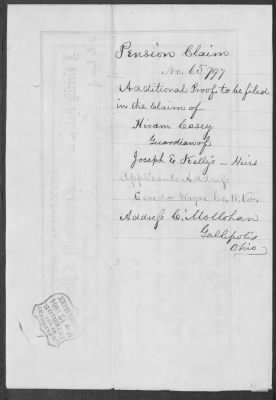 Pension Claim
No. 65797
Additional Proof to be filed
in the Claim of
Hiram Casey
Guardian of
Joseph E Kelly's Heirs
Applicants Address
Ceredo Wayne Co, W. Va,
Address C, Mollohan
Gallipolis
Ohio